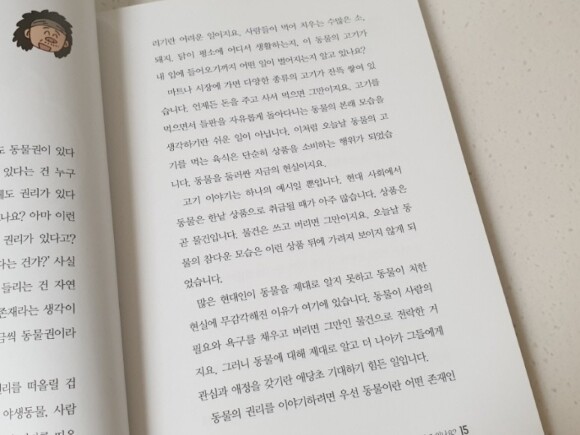 도 동물권이 있다
있다는 건 누구
에도 권리가 있다
나요? 아마 이런
권리가 있다고?
다는 건가?' 사실
들리는 건 자연
존재라는 생각이
금씩 동물권이라
권리를 떠올릴 겁
야생동물, 사람
리기란 어려운 일이지요. 사람들이 먹어 치우는 수많은 소,
돼지, 닭이 평소에 어디서 생활하는지, 이 동물의 고기가
내 입에 들어오기까지 어떤 일이 벌어지는지 알고 있나요?
마트나 시장에 가면 다양한 종류의 고기가 잔뜩 쌓여 있
습니다. 언제든 돈을 주고 사서 먹으면 그만이지요. 고기를
먹으면서 들판을 자유롭게 돌아다니는 동물의 본래 모습을
생각하기란 쉬운 일이 아닙니다. 이처럼 오늘날 동물의 고
기를 먹는 육식은 단순히 상품을 소비하는 행위가 되었습
니다. 동물을 둘러싼 지금의 현실이지요.
고기 이야기는 하나의 예시일 뿐입니다. 현대 사회에서
동물은 한낱 상품으로 취급될 때가 아주 많습니다. 상품은
곧 물건입니다. 물건은 쓰고 버리면 그만이지요. 오늘날 동
물의 참다운 모습은 이런 상품 뒤에 가려져 보이지 않게 되
었습니다.
많은 현대인이 동물을 제대로 알지 못하고 동물이 처한
현실에 무감각해진 이유가 여기에 있습니다. 동물이 사람의
필요와 욕구를 채우고 버리면 그만인 물건으로 전락한 거
지요. 그러니 동물에 대해 제대로 알고 더 나아가 그들에게
관심과 애정을 갖기란 애당초 기대하기 힘든 일입니다.
동물의 권리를 이야기하려면 우선 동물이란 어떤 존재인
15